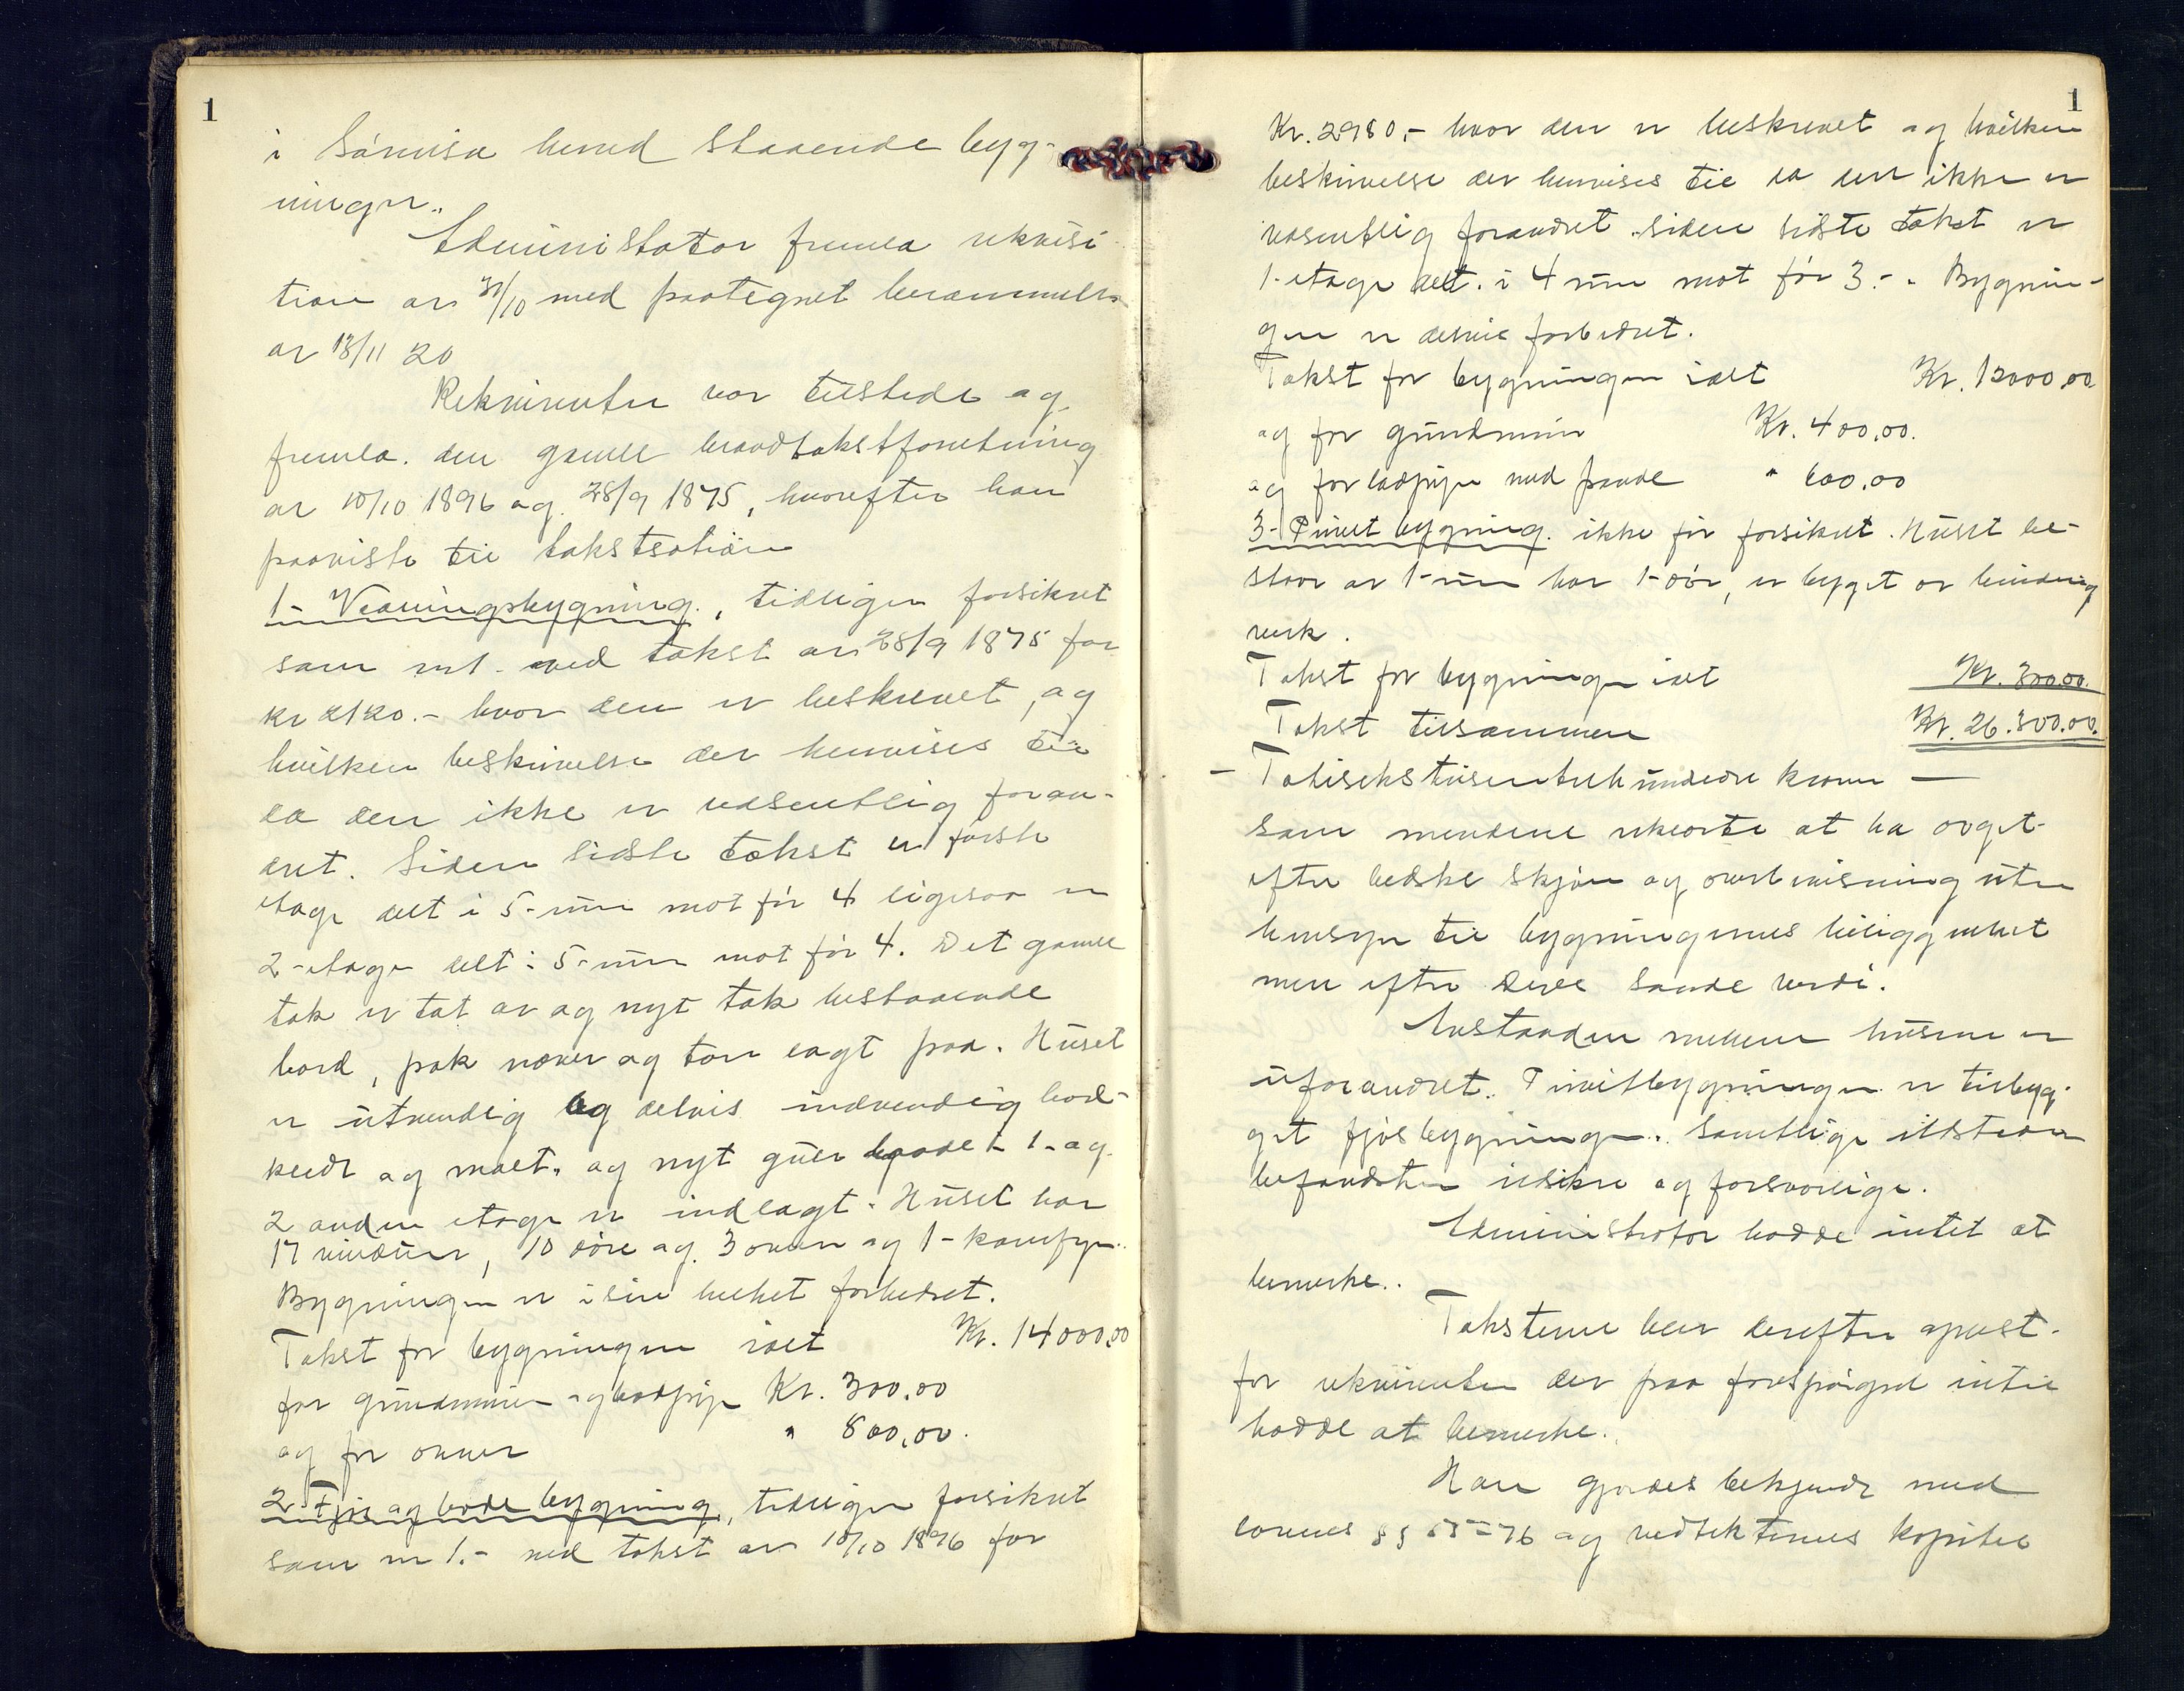 1
i Sørreisa herred staaende byg-
ninger.
Administrator fremla rekvisi-
tion av 31/10 med paategnet berammelse
av 13/11 20
Rekvirenten var tilstede og
fremla den gamle brandtakstforretning
av 10/10 1896 og 28/9 1875, hvorefter han
paaviste til takstation
1- Vaaningsbygning, tidligere forsikret
som nr 1. ved takst av 28/9 1875 for
kr 2120.- hvor den er beskrevet, og
hvilken beskrivelse der henvises til
da den ikke er væsentlig foran-
dret. Siden sidste takst er første
etage delt i 5-rum mot før 4 ligesaa er
2-etage delt i 5-rum mot før 4. Det gamle
tak er tat av og nyt tak bestaaende
bord, pak næver og torv lagt paa. Huset
er utvendig og delvis indvendig bord-
klædt og malt, og nyt gulv baade i 1- og
2 anden etage er indlagt. Huset har
17 vinduer, 10 døre og 3 ovner og 1-komfyr.
Bygningen er i sin helhet forbedret.
Takst for bygningen ialt Kr. 14000,00
for grundmur og brandpipe Kr. 300,00
og for ovner " 800,00.
2- Fjøs og lade bygning, tidligere forsikret
som nr 1.- ved takst av 10/10 1896 for
1
Kr. 2980,- hvor den er beskrevet og hvilken
beskrivelse der henvises til da den ikke er
væsentlig forandret. siden sidste takst er
1-etage delt i 4 rum mot før 3.-. Bygnin-
gen er delvis forbedret.
Takst for bygningen ialt Kr. 12000,00
og for grundmur Kr. 400,00.
og for brandpipe med pande " 600,00
3- Privet bygning. ikke før forsikret. Huset be-
staar av 1-rum har 1-dør, er bygget av bindings
verk.
Takst for bygningen ialt Kr. 300,00.
Takst tilsammen Kr. 26.300,00.
- Tjuesekstusentrehundrede kroner -
som mændene erklærte at ha avgit
efter bedste skjøn og overbevisning uten
hensyn til bygningenes beliggenhet
men efter deres sande verdi.
Avstanden mellem husene er
uforandret. Privetbygningen er tilbyg-
get fjøsbygningen. Samtlige ildsteder
befandtes ildsikre og forsvarlige.
Administrator hadde intet at
bemerke.
Taksterne blev derefter oplæst
for rekvirenten der paa forespørgsel intet
hadde at bemerke.
Han gjordes bekjendt med
lovens §§ 75-76 og vedtekternes kapitel